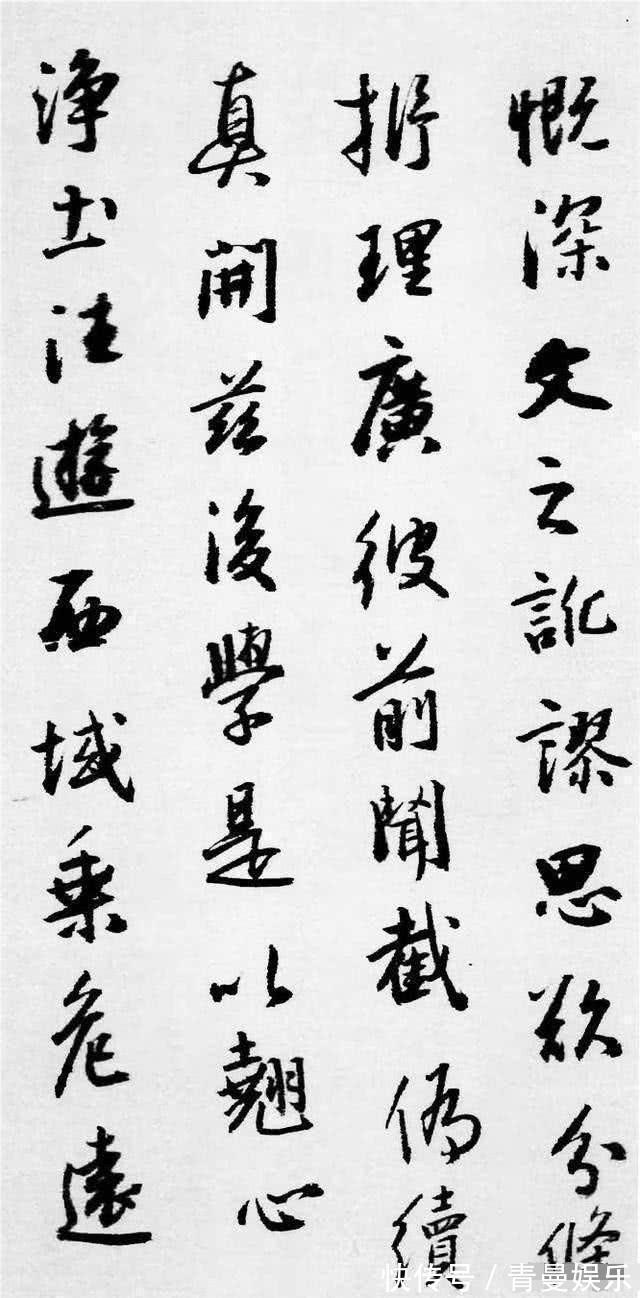 慨深文之訛謬思欲分條
析理廣彼前聞截偽續
真開茲後學是以翹心
淨土法遊西域乘危遠
快传号/青曼娱乐